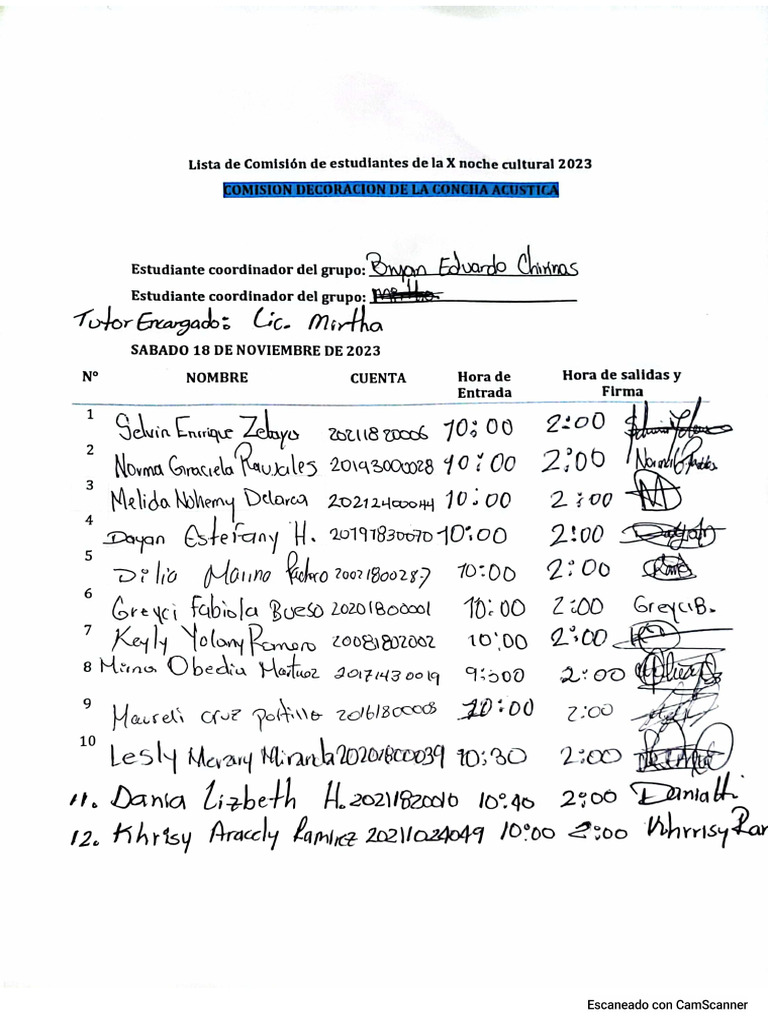 Lista de Comisión de estudiantes de la X noche cultural 2023
COMISION DECORACION DE LA CONCHA ACUSTICA
Estudiante coordinador del grupo: Bryan Eduardo Chirinos
Estudiante coordinador del grupo:
Tutor Encargado: Lic. Mirtha
SABADO 18 DE NOVIEMBRE DE 2023
Nº NOMBRE CUENTA Hora de Entrada Hora de salidas y Firma
1 Selvin Enrique Zelaya 20211820006 10:00 2:00
2 Norma Graciela 20193000028 10:00 2:00
3 Melida Nohemy Delarca 20212400044 10:00 2:00
4 Dayan Estefany H. 20191830070 10:00 2:00
5 Dilia Marina Pacheco 20021800287 10:00 2:00
6 Greyci Fabiola Bueso 20201800001 10:00 2:00 Greyci B.
7 Keyly Yolany Romero 20081802002 10:00 2:00
8 Mirna Obedia 20171430019 2:00
9 Maureli Cruz Portillo 20161800008 10:00 2:00
10 Lesly Merary Miranda 20201800039 10:30 2:00
11. Dania Lizbeth H. 20211820010 10:40 2:00 Dania H
12. Khrisy Aracely Ramirez 20211024049 10:00 2:00 Khrrisy Ram
Escaneado con CamScanner